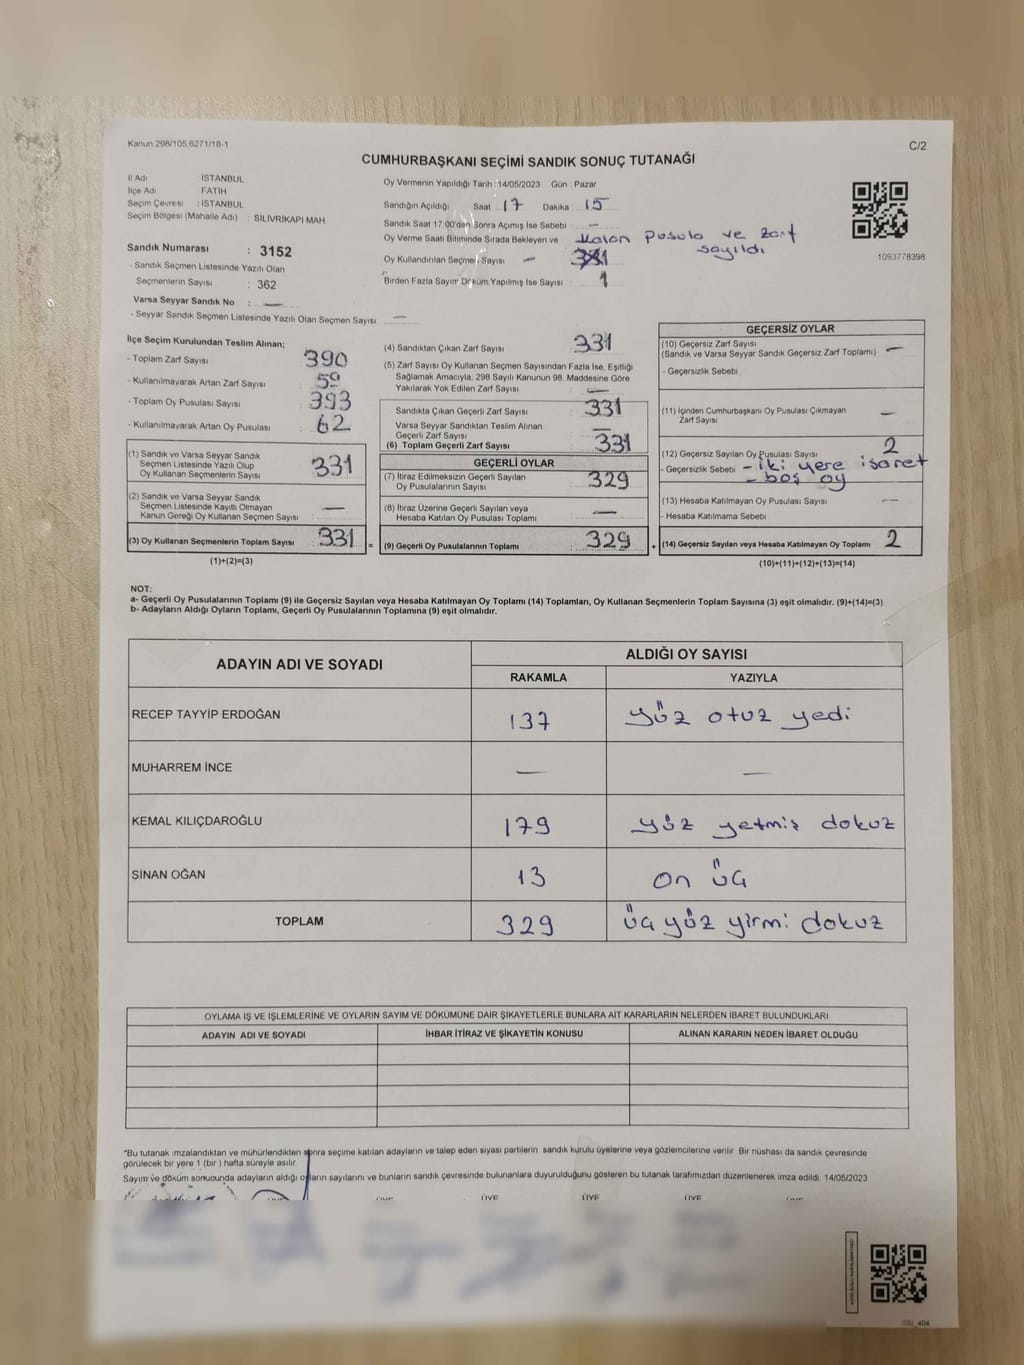 Kanun:298/105,6271/18-1
C/2
CUMHURBAŞKANI SEÇİMİ SANDIK SONUÇ TUTANAĞI
İl Adı : İSTANBUL
İlçe Adı : FATİH
Seçim Çevresi : İSTANBUL
Seçim Bölgesi (Mahalle Adı) : SİLİVRİKAPI MAH
Sandık Numarası : 3152
- Sandık Seçmen Listesinde Yazılı Olan
Seçmenlerin Sayısı : 362
Varsa Seyyar Sandık No : —
- Seyyar Sandık Seçmen Listesinde Yazılı Olan Seçmen Sayısı : —
Oy Vermenin Yapıldığı Tarih : 14/05/2023 Gün : Pazar
Sandığın Açıldığı Saat : 17 Dakika : 15
Sandık Saat 17:00'den Sonra Açımış İse Sebebi : —
Oy Verme Saati Bitiminde Sırada Bekleyen ve Kalan pusula ve zarf
sayıldı
Oy Kullandırılan Seçmen Sayısı : —
Birden Fazla Sayım Döküm Yapılmış İse Sayısı : 1
1093778398
İlçe Seçim Kurulundan Teslim Alınan;
- Toplam Zarf Sayısı : 390
- Kullanılmayarak Artan Zarf Sayısı : 59
- Toplam Oy Pusulası Sayısı : 393
- Kullanılmayarak Artan Oy Pusulası : 62
(1) Sandık ve Varsa Seyyar Sandık
Seçmen Listesinde Yazılı Olup
Oy Kullanan Seçmenlerin Sayısı : 331
(2) Sandık ve Varsa Seyyar Sandık
Seçmen Listesinde Kayıtlı Olmayan
Kanun Gereği Oy Kullanan Seçmen Sayısı : —
(3) Oy Kullanan Seçmenlerin Toplam Sayısı : 331 =
(1)+(2)=(3)
(4) Sandıktan Çıkan Zarf Sayısı : 331
(5) Zarf Sayısı Oy Kullanan Seçmen Sayısından Fazla İse, Eşitliği
Sağlamak Amacıyla; 298 Sayılı Kanunun 98. Maddesine Göre
Yakılarak Yok Edilen Zarf Sayısı : —
Sandıkta Çıkan Geçerli Zarf Sayısı : 331
Varsa Seyyar Sandıktan Teslim Alınan
Geçerli Zarf Sayısı : —
(6) Toplam Geçerli Zarf Sayısı : 331
GEÇERLİ OYLAR
(7) İtiraz Edilmeksizin Geçerli Sayılan
Oy Pusulalarının Sayısı : 329
(8) İtiraz Üzerine Geçerli Sayılan veya
Hesaba Katılan Oy Pusulası Toplamı : —
(9) Geçerli Oy Pusulalarının Toplamı : 329 +
GEÇERSİZ OYLAR
(10) Geçersiz Zarf Sayısı
(Sandık ve Varsa Seyyar Sandık Geçersiz Zarf Toplamı) : —
- Geçersizlik Sebebi :
(11) İçinden Cumhurbaşkanı Oy Pusulası Çıkmayan
Zarf Sayısı : —
(12) Geçersiz Sayılan Oy Pusulası Sayısı : 2
- Geçersizlik Sebebi - iki yere işaret
- boş oy
(13) Hesaba Katılmayan Oy Pusulası Sayısı : —
- Hesaba Katılmama Sebebi :
(14) Geçersiz Sayılan veya Hesaba Katılmayan Oy Toplamı : 2
(10)+(11)+(12)+(13)=(14)
NOT:
a- Geçerli Oy Pusulalarının Toplamı (9) ile Geçersiz Sayılan veya Hesaba Katılmayan Oy Toplamı (14) Toplamları, Oy Kullanan Seçmenlerin Toplam Sayısına (3) eşit olmalıdır. (9)+(14)=(3)
b- Adayların Aldığı Oyların Toplamı, Geçerli Oy Pusulalarının Toplamına (9) eşit olmalıdır.
ADAYIN ADI VE SOYADI ALDIĞI OY SAYISI
RAKAMLA YAZIYLA
RECEP TAYYİP ERDOĞAN 137 yüz otuz yedi
MUHARREM İNCE — —
KEMAL KILIÇDAROĞLU 179 yüz yetmiş dokuz
SİNAN OĞAN 13 on üç
TOPLAM 329 üç yüz yirmi dokuz
OYLAMA İŞ VE İŞLEMLERİNE VE OYLARIN SAYIM VE DÖKÜMÜNE DAİR ŞİKAYETLERLE BUNLARA AİT KARARLARIN NELERDEN İBARET BULUNDUKLARI
ADAYIN ADI VE SOYADI İHBAR İTİRAZ VE ŞİKAYETİN KONUSU ALINAN KARARIN NEDEN İBARET OLDUĞU
*Bu tutanak imzalandıktan ve mühürlendikten sonra seçime katılan adayların ve talep eden siyasi partilerin sandık kurulu üyelerine veya gözlemcilerine verilir. Bir nüshası da sandık çevresinde
görülecek bir yere 1 (bir ) hafta süreyle asılır.
Sayım ve döküm sonucunda adayların aldığı oyların sayılarını ve bunların sandık çevresinde bulunanlara duyurulduğunu gösteren bu tutanak tarafımızdan düzenlenerek imza edildi. 14/05/2023
ÜYE ÜYE ÜYE ÜYE